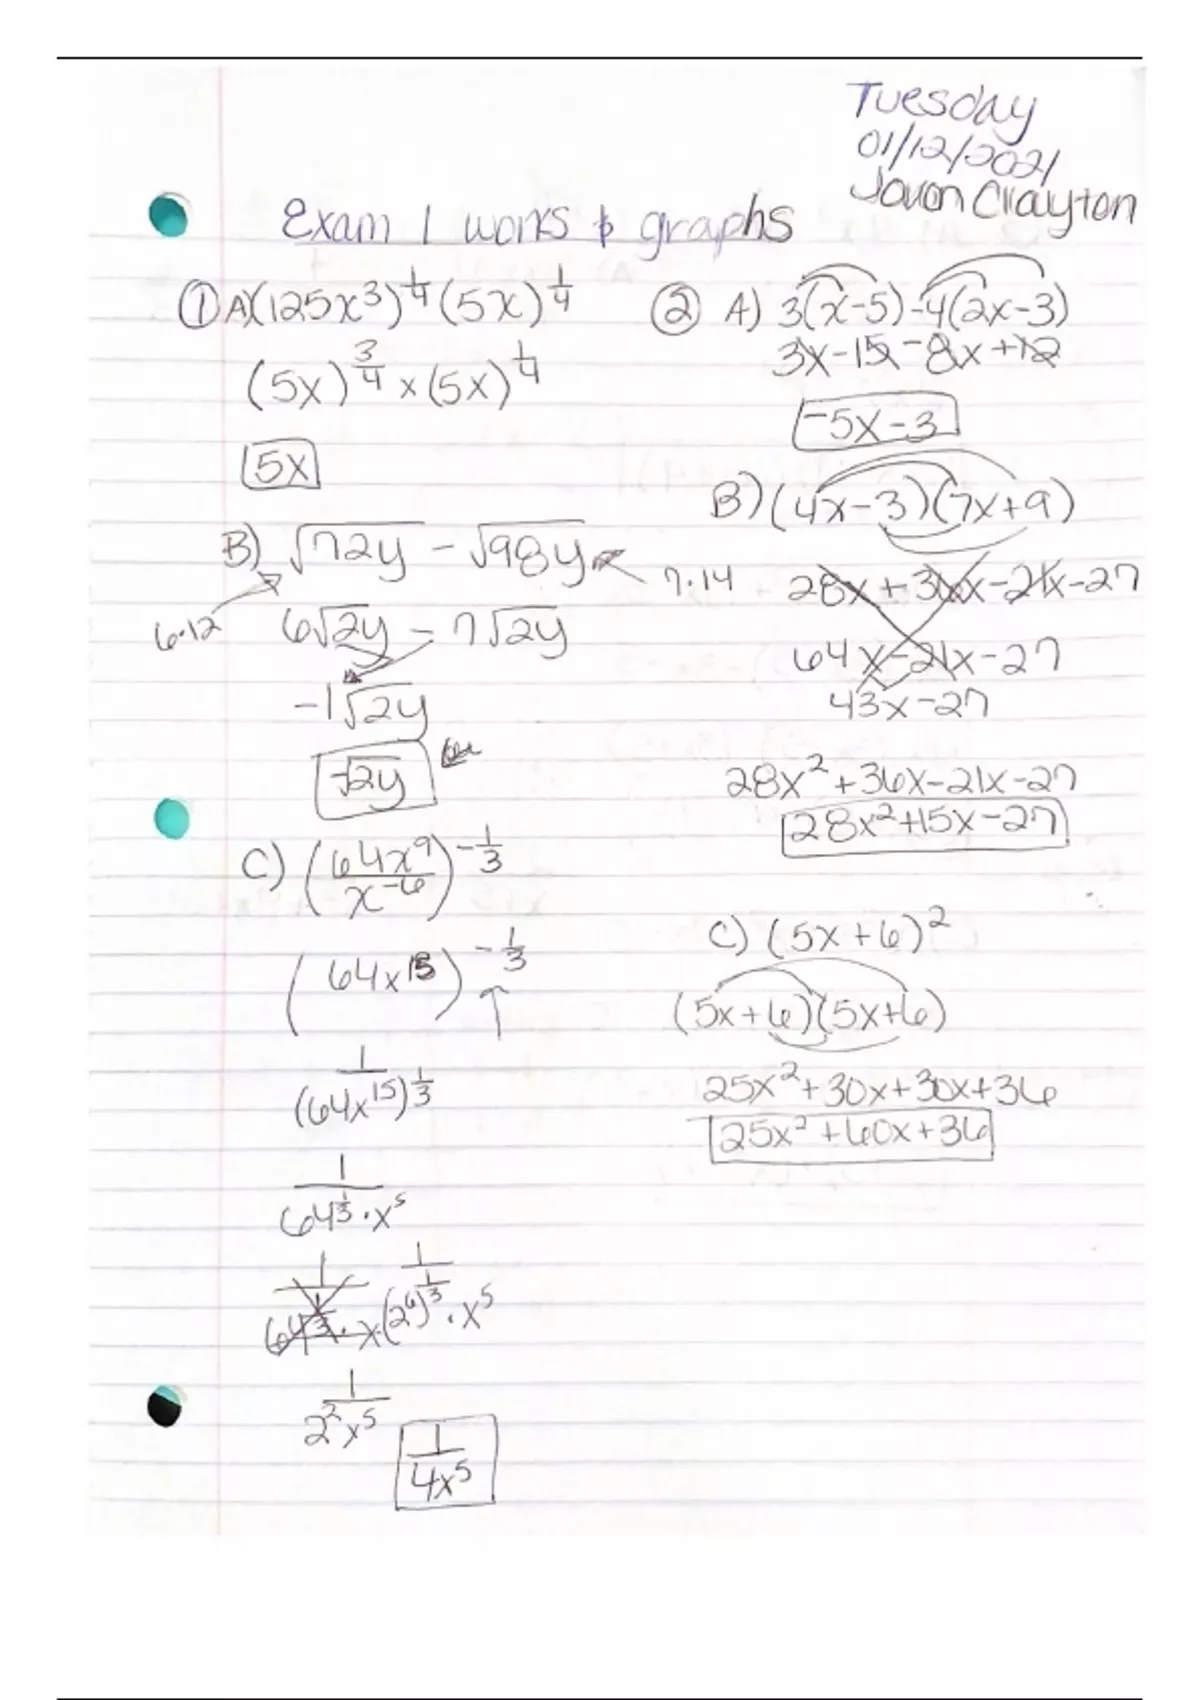 Tuesday
01/12/2021
Javon Clayton
Exam 1 works & graphs
① A) (125x³)^1/4 (5x)^1/4
(5x)^3/4 × (5x)^1/4
5x
B) √72y - √98y
6·12
7·14
6√2y - 7√2y
-1√2y
-√2y
C) (64x⁹/x⁻⁶)^-1/3
(64x¹⁵)^-1/3
1/(64x¹⁵)^1/3
1/64^1/3 · x⁵
1/(2⁶)^1/3 · x⁵
1/2²x⁵
1/4x⁵
② A) 3(x-5)-4(2x-3)
3x-15-8x+12
-5x-3
B) (4x-3)(7x+9)
28x+36x-21x-27
64x-21x-27
43x-27
28x²+36x-21x-27
28x²+15x-27
C) (5x+6)²
(5x+6)(5x+6)
25x²+30x+30x+36
25x²+60x+36